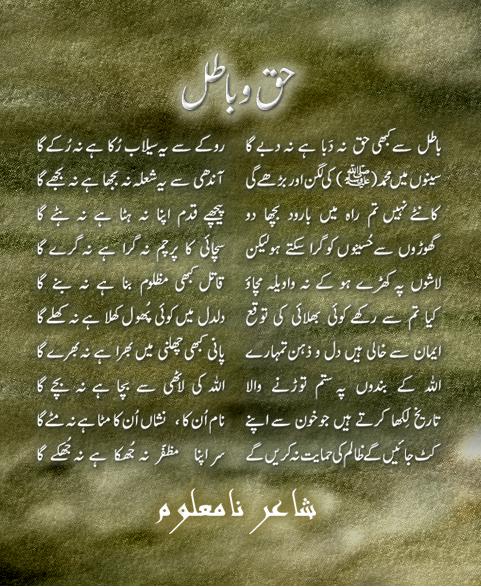 حق و باطل
باطل سے کبھی حق نہ دَبا ہے نہ دبے گا روکے سے یہ سیلاب رُکا ہے نہ رُکے گا
سینوں میں محمد(ﷺ) کی لگن اور بڑھے گی آندھی سے یہ شعلہ نہ بجھا ہے نہ بجھے گا
کانٹے نہیں تم راہ میں بارود بچھا دو پیچھے قدم اپنا نہ ہٹا ہے نہ ہٹے گا
گھوڑوں سے حُسینوں کو گرا سکتے ہو لیکن سچائی کا پرچم نہ گرا ہے نہ گرے گا
لاشوں پہ کھڑے ہو کے نہ واویلہ مچاؤ قاتل کبھی مظلوم بنا ہے نہ بنے گا
کیا تم سے رکھے کوئی بھلائی کی توقع دلدل میں کوئی پھُول کھلا ہے نہ کھلے گا
ایمان سے خالی ہیں دل و ذہن تمہارے پانی کبھی چھلنی میں بھرا ہے نہ بھرے گا
اللہ کے بندوں پہ ستم توڑنے والا اللہ کی لاٹھی سے بچا ہے نہ بچے گا
تاریخ لکھا کرتے ہیں جو خون سے اپنے نام اُن کا ، نشاں اُن کا مٹا ہے نہ مٹے گا
کٹ جائیں گے ظالم کی حمایت نہ کریں گے سر اپنا مظفّر نہ جھکا ہے نہ جُھکے گا
شاعر نامعلوم